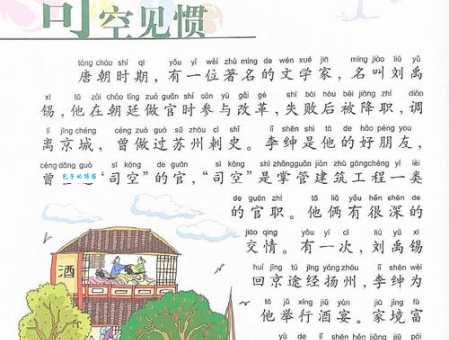 司空见惯
táng cháo shí qī yǒu yí wèi zhù míng de wén xué jiā míng jiào liú yǔ
唐朝时期，有一位著名的文学家，名叫刘禹
xī tā zài cháo tíng zuò guān shí cān yù gǎi gé shī bài hòu bèi jiàng zhí diào
锡，他在朝廷做官时参与改革，失败后被降职，调
lí jīng chéng céng zuò guò sū zhōu cì shǐ lǐ shēn shì tā de hǎo péng you
离京城，曾做过苏州刺史。李绅是他的好朋友，
céng dāng guò sī kōng de guān sī kōng shì zhǎngguǎn jiàn zhù gōngchéng yí lèi
曾 “司空”的官，“司空”是掌管建筑工程一类
de guān zhí tā liǎ yǒu hěn shēn de
的官职。他俩有很深的
jiāo qíng yǒu yí cì liú yǔ xī
交情。有一次，刘禹锡
huí jīng tú jīng yáng zhōu lǐ shēn wèi
回京途经扬州，李绅为
tā jǔ xíng jiǔ yàn jiā jìng fù
他举行酒宴。家境富
酒